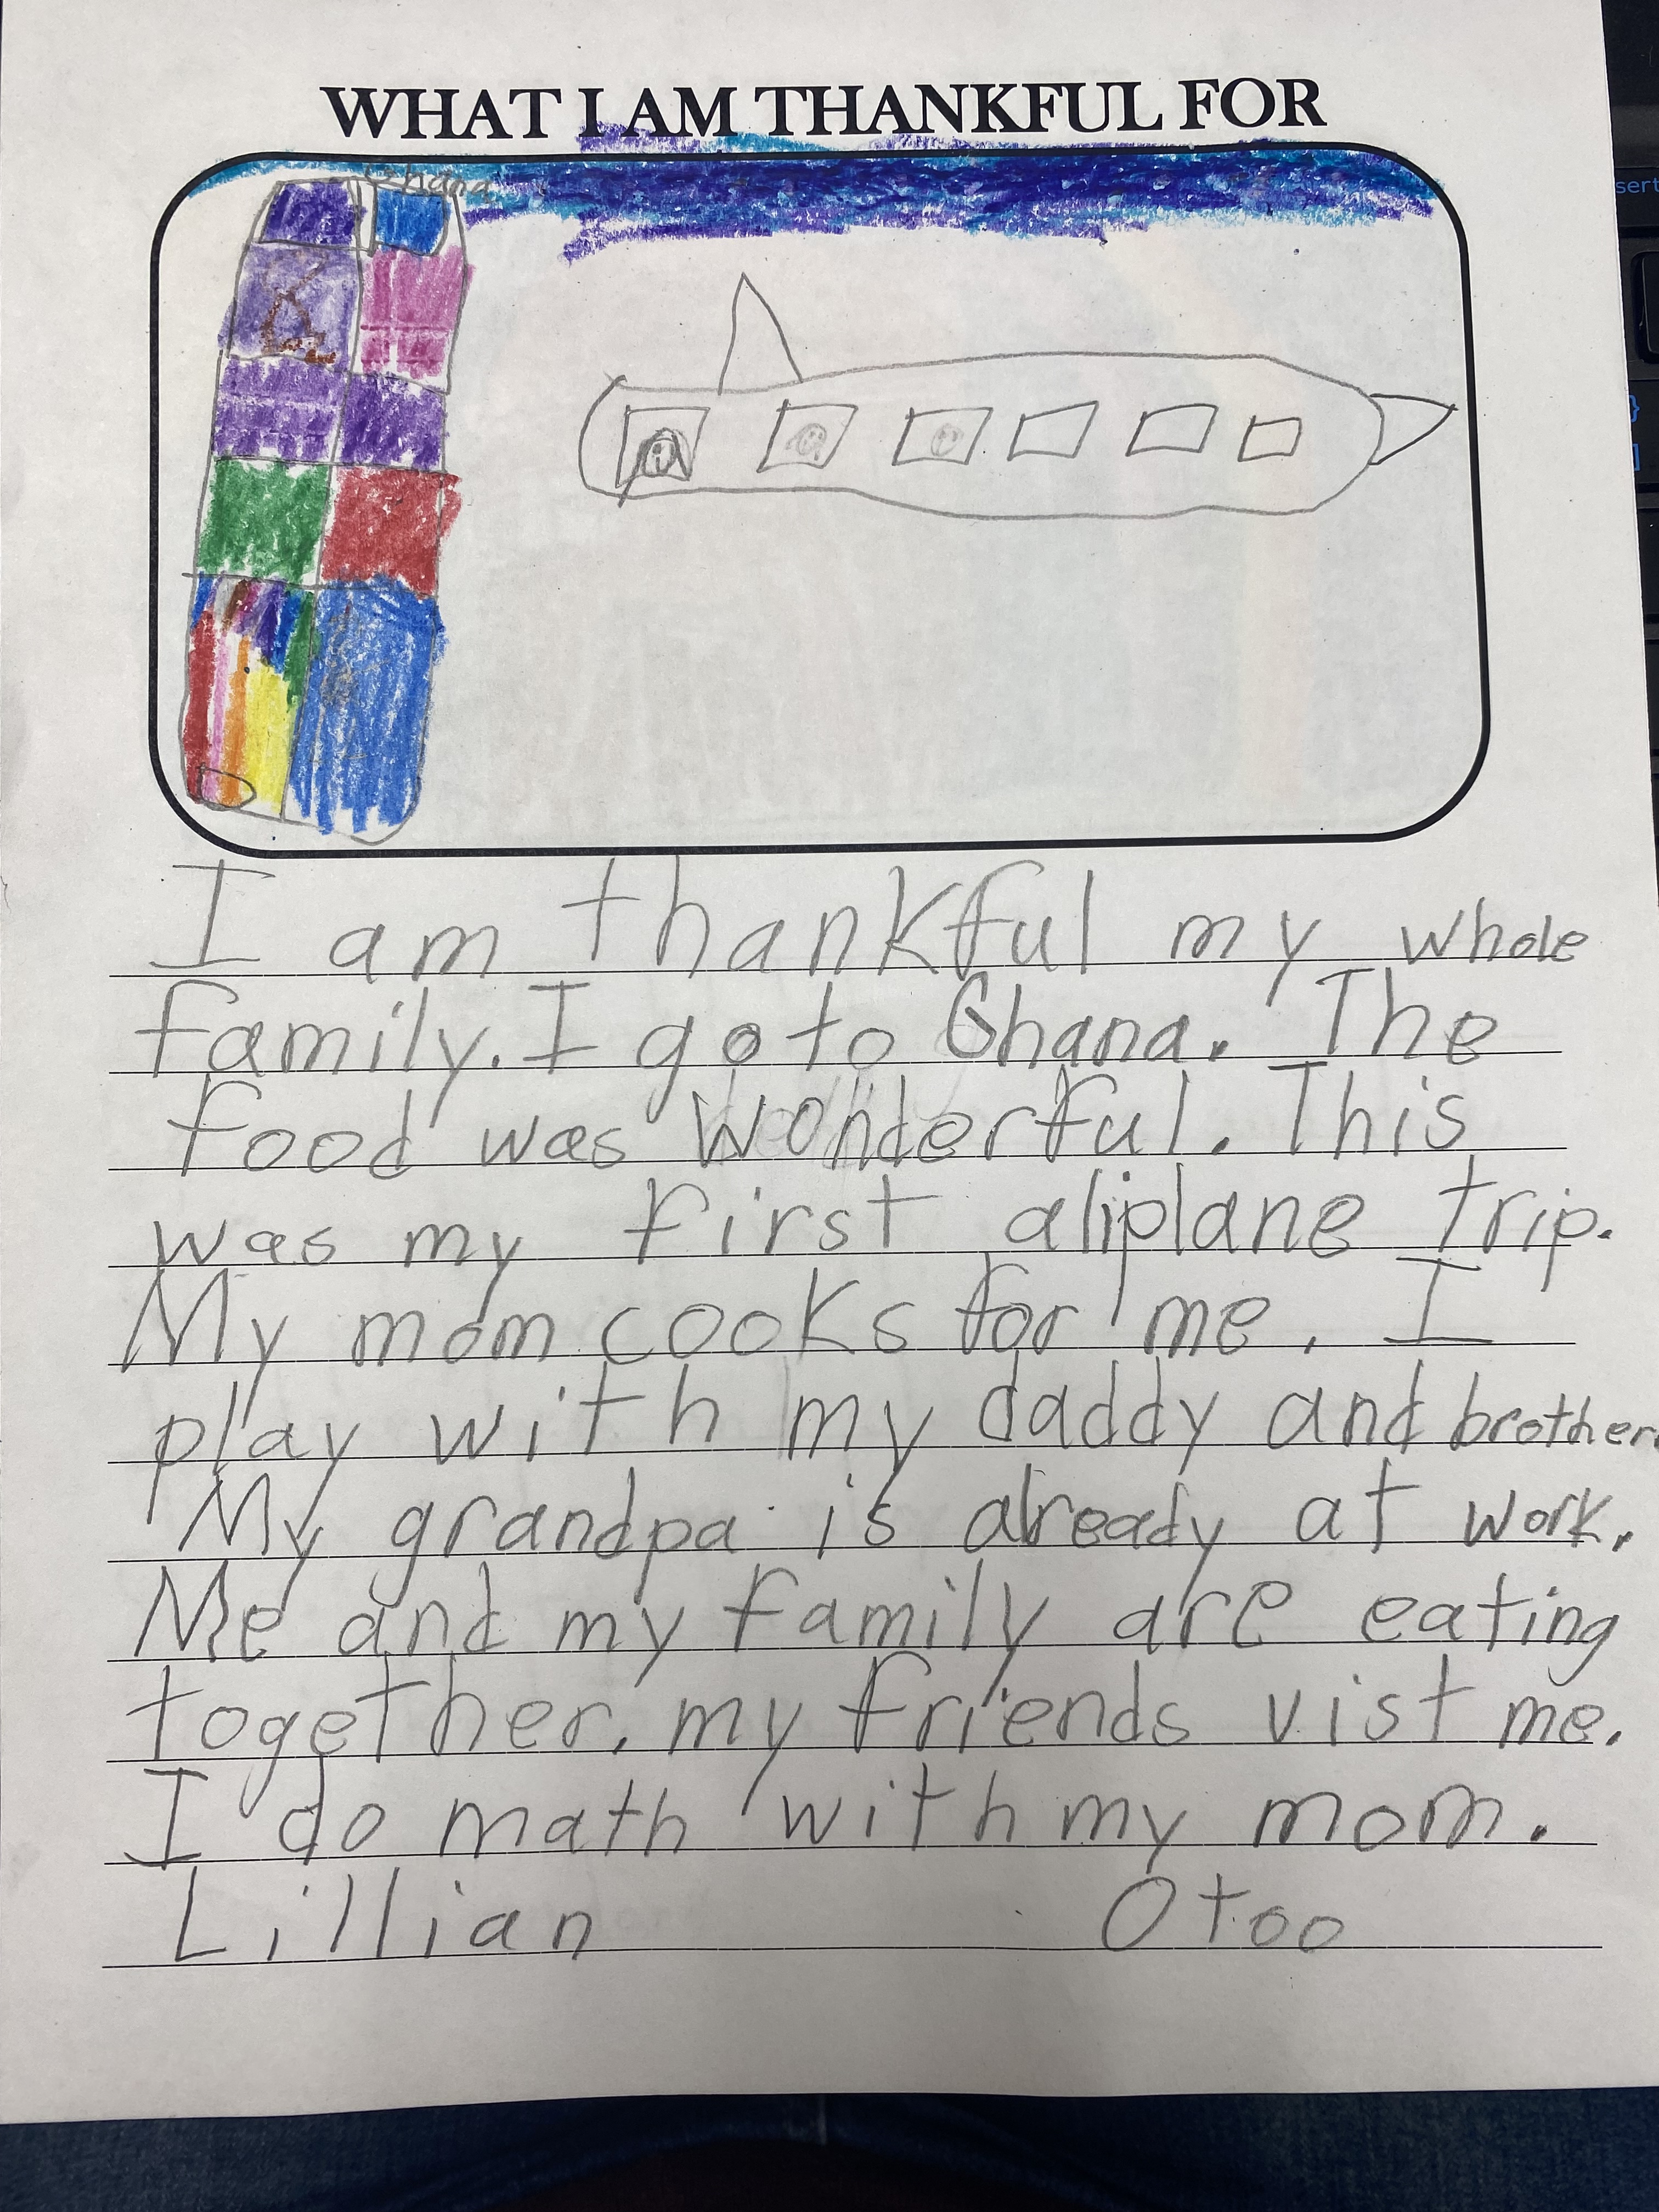 WHAT I AM THANKFUL FOR
Ghana
I am thankful my whole
family. I go to Ghana. The
food was wonderful. This
was my first aliplane trip.
My mom cooks for me. I
play with my daddy and brother.
My grandpa is already at work.
Me and my family are eating
together. my friends vist me.
I do math with my mom.
Lillian Otoo
sert
}
]